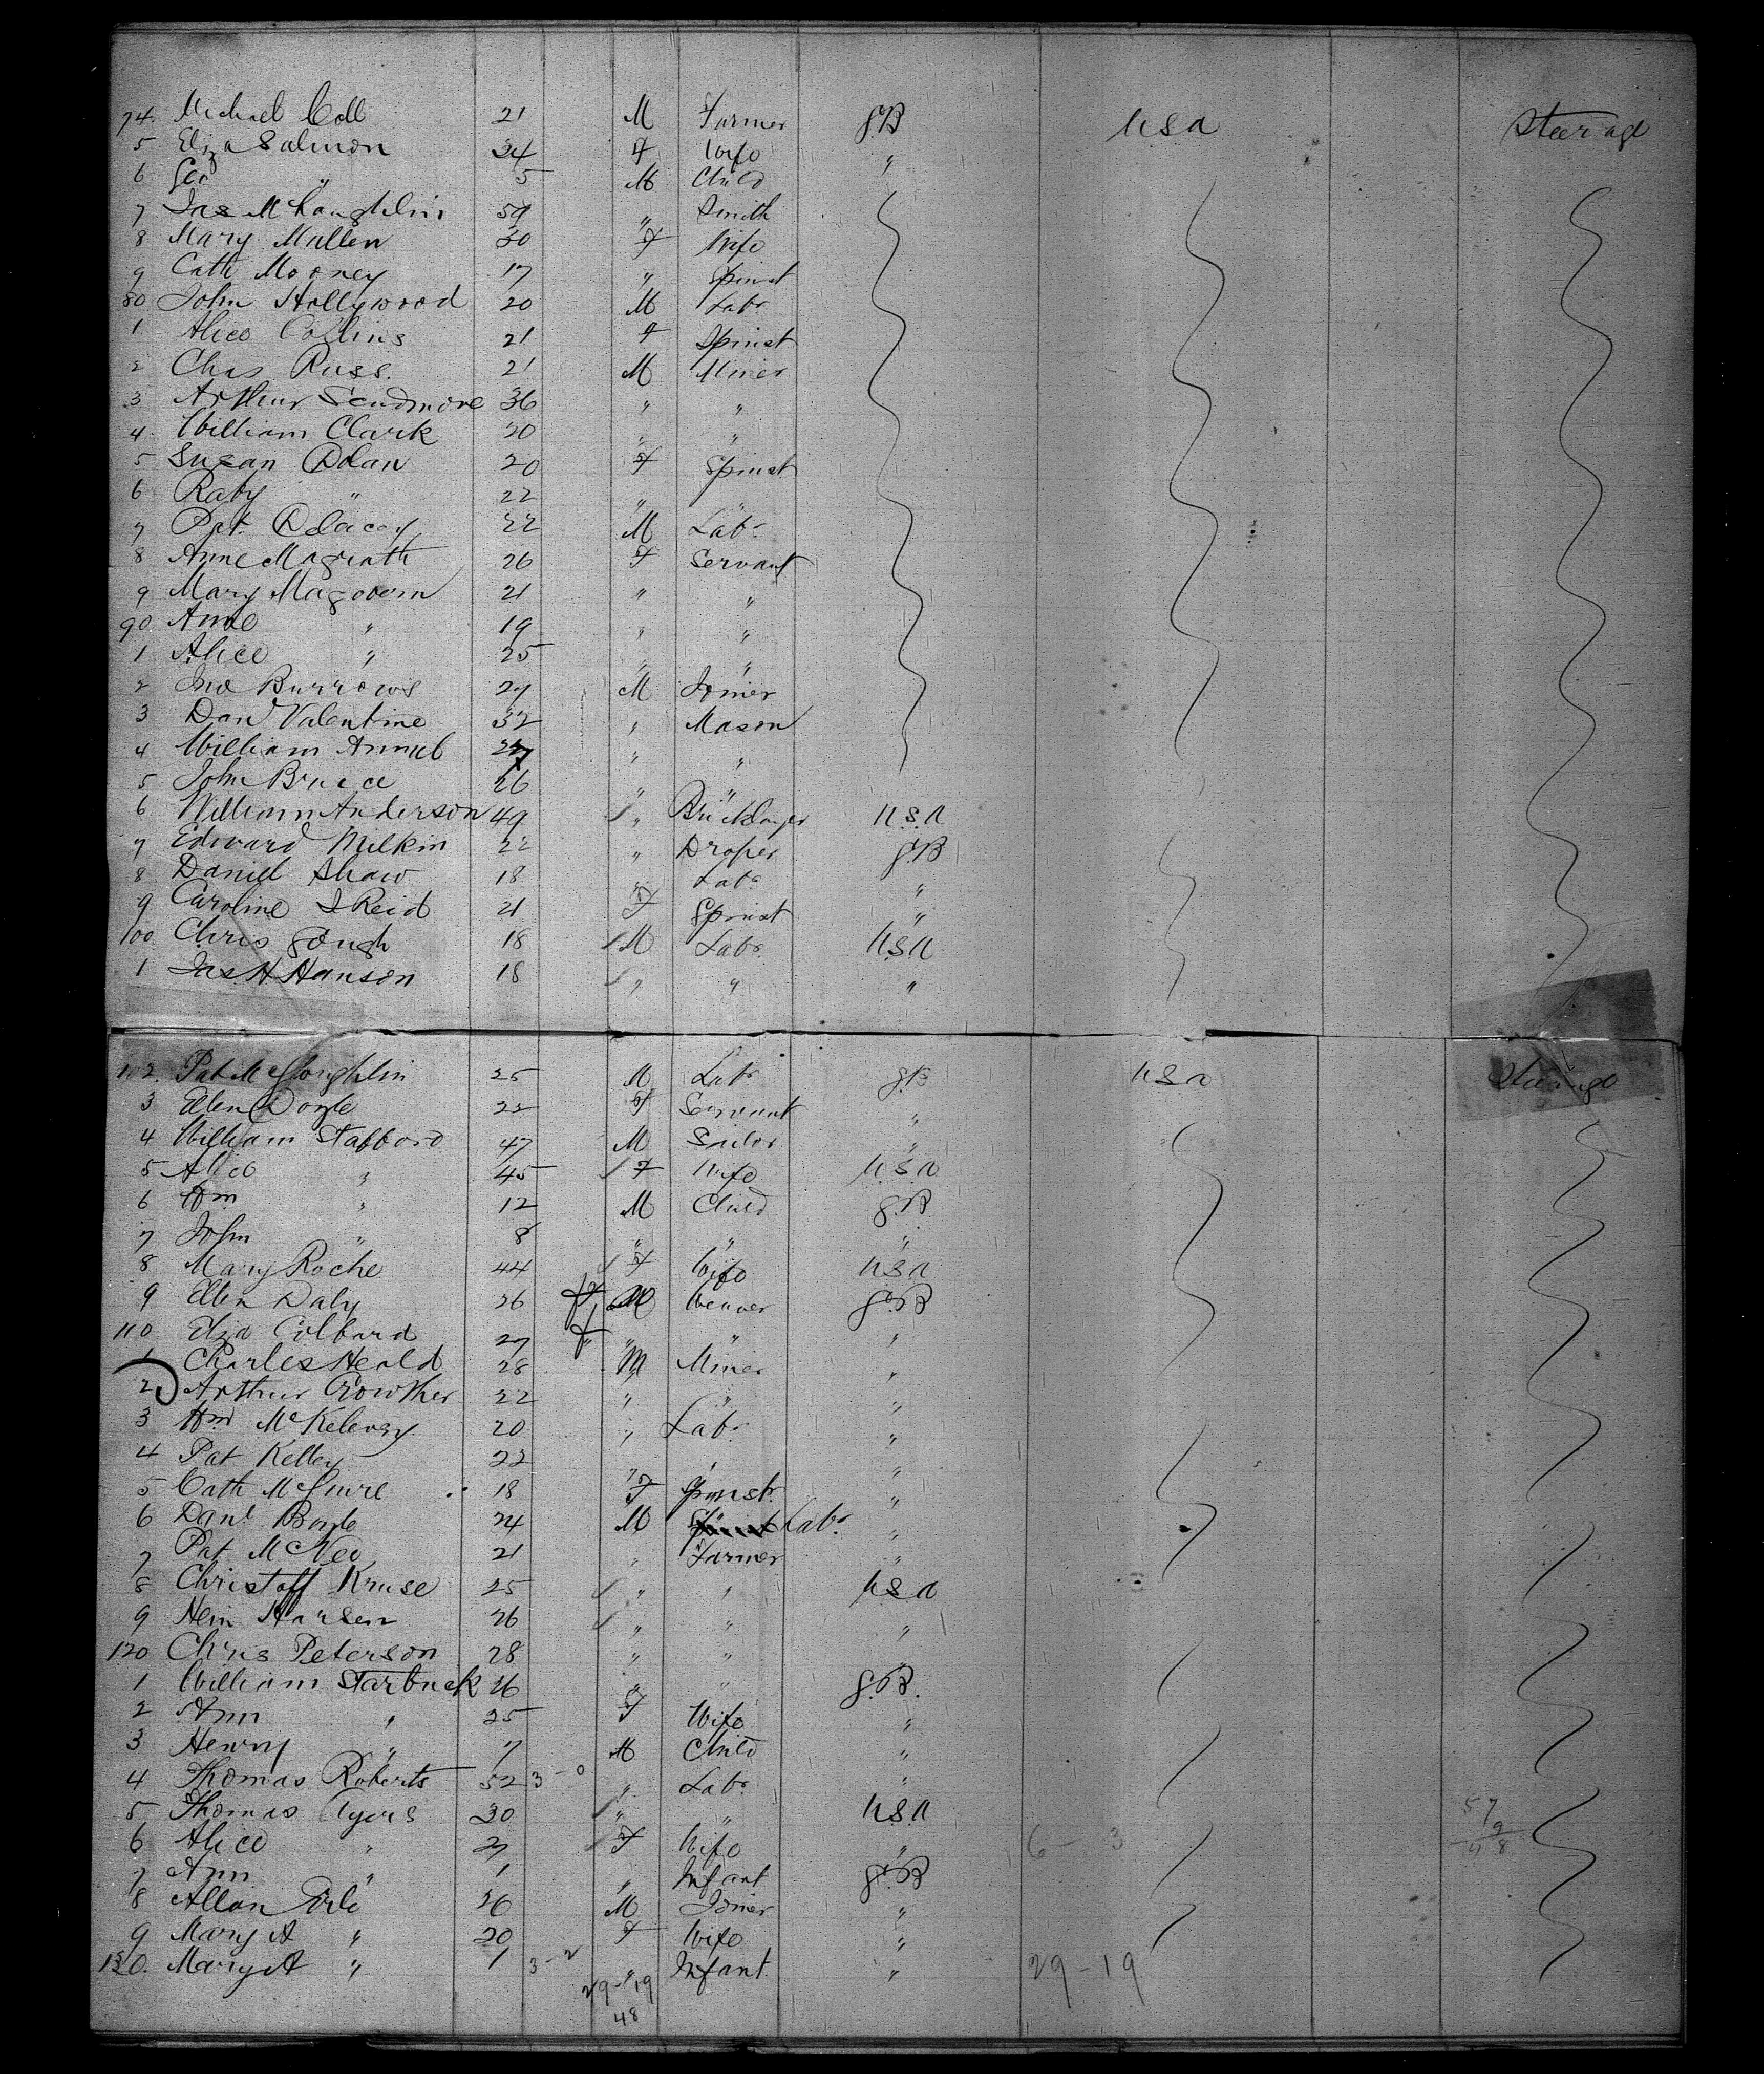 74. Michael Coll 21 M Farmer GB USA Steerage
5 Eliza Salmon 24 F Wife "
6 Geo " 5 M Child
7 Jas McLaughlin 59 " Smith
8 Mary Mullen 30 F Wife
9 Cath Mooney 17 " Spinst
80 John Hollywood 20 M Labr
1 Alice Collins 21 F Spinst
2 Chas Russ. 21 M Miner
3 Arthur Scudmore 36 " "
4. William Clark 20 " "
5 Susan Dolan 20 F Spinst
6 " 22 " "
7 Pat. 22 M Labr
8 Anne Magrath 26 F Servant
9 Mary Magovern 21 " "
90 Anne " 19 " "
1 Alice " 25 " "
2 Jno Burrows 27 M Joiner
3 Dan Valentine 32 " Mason
4 William 27 " "
5 John Bruce 26 " "
6 William Anderson 49 " Bricklayer USA
7 Edward Milkin 22 " Draper GB
8 Daniel Shaw 18 " Labr "
9 Caroline Reid 21 F Spinst "
100 Chris Gough 18 M Labr. USA
1 Jas. H Hanson 18 " " "
102. Pat McLoughlin 25 M Labr GB USA Steerage
3 Ellen Doyle 22 F Servant "
4 William Stafford 47 M Sailor "
5 Alice " 45 F Wife USA
6 Wm " 12 M Child GB
7 John " 8 " " "
8 Mary Roche 44 F Wife USA
9 Ellen Daly 26 F M Weaver GB
110 Eliza Colbard 27 F " " "
1 Charles Heald 28 M Miner "
2 Arthur Crowther 22 " " "
3 Wm McKelvey 20 " Labr "
4 Pat Kelley 22 " " "
5 Cath McGuire 18 F Spinstr "
6 Danl Boyle 24 M Spinst Labr "
7 Pat McNeo 21 " Farmer "
8 Christoff Kruse 25 " " USA
9 Hein Hansen 26 " " "
120 Chris Peterson 28 " " "
1 William Starbuck 26 " " GB.
2 Ann " 25 F Wife "
3 Henry " 7 M Child "
4 Thomas Roberts 52 3-0 " Labr "
5 Thomas Ayers 30 " " USA
6 Alice " 27 F Wife " 6-3
7 Ann " 1 " Infant GB
8 Allan 26 M Joiner "
9 Mary A " 20 F Wife "
130. Mary A " 1 3-2 " Infant " 29-19
29-19
48
57
9
48